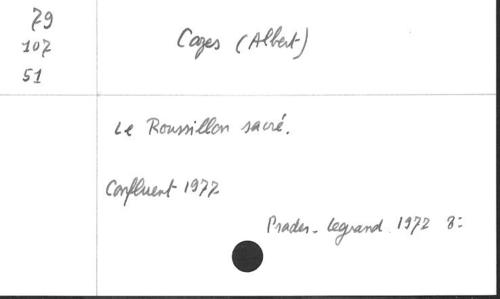 79
107
51
Cazes (Albert)
Le Roussillon sacré.
Confluent 1977
Prades - Legrand. 1972 8: